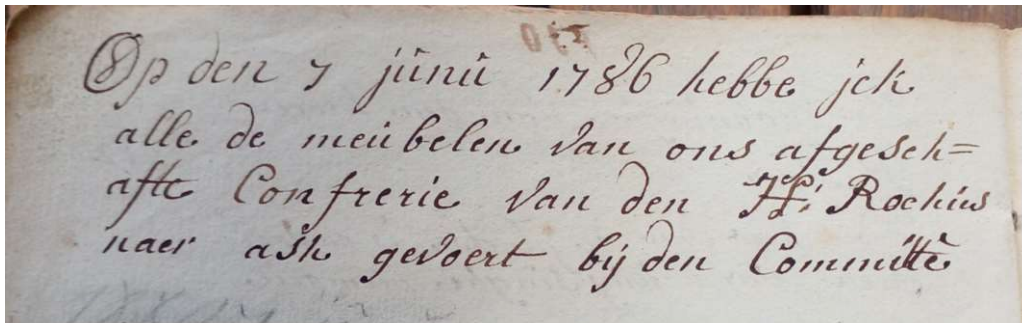 Op den 7 junii 1786 hebbe jck
alle de meubelen van ons afgesch=
afte Confrerie van den H: Rochus
naer ash gevoert bij den Committé